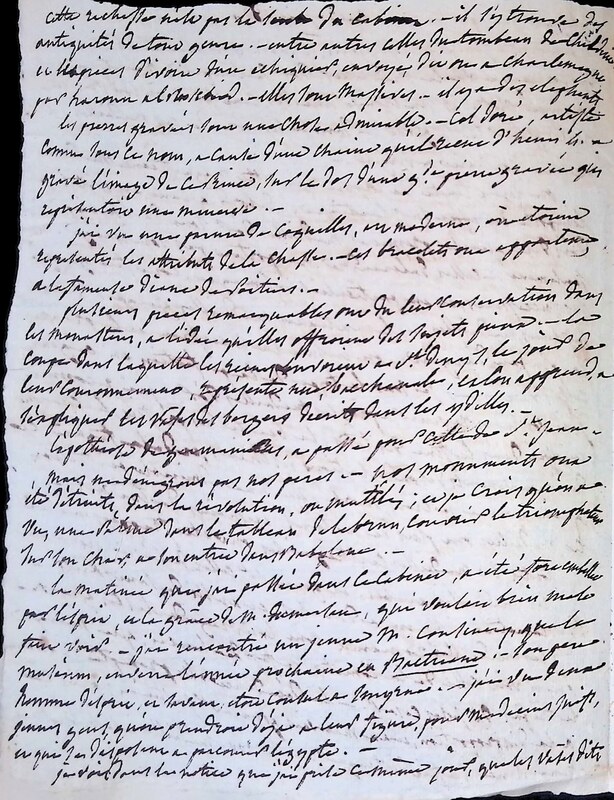 cette richesse n'est pas la seule du cabinet. - il s'y trouve des
antiquités de tout genre. - entre autres celles du tombeau de Childeric
et les pieces d'ivoire d'un echiquier, envoyé dit on a Charlemagne
par haroun al-Raschid. - elles sont massives - il y a des elephants
les pierres gravées sont une chose admirable. - Coldoré, artiste
connu sous ce nom, a cause d'une chaine qu'il recut d'henri 4. a
gravé l'image de ce Prince, sur le dos d'une gde pierre gravée qui
representoit une minerve. -
j'ai vu une paire de coquilles, ou moderne, on
representés les attributs de la chasse. - ces bracelets ont appartenu
a la fameuse diane de Poitiers. -
plusieurs pieces remarquables ont du leur conservation dans
les monasteres, a l'idée qu'elles offroient des sujets pieux. - la
coupe dans laquelle les reines buvoient a St. denys, le jour de
leur couronnement, represente une bacchanale, et l'on apprend a
s'expliquer les vases des bergers decrits dans les ydilles. -
l'apothéose de germanicus, a passé pour celle de St. Jean. -
mais ne dénigrons pas nos peres. - nos monuments ont
été détruits, dans la révolution, ou mutilés; et je crois qu'on a
vu, une dans le tableau de lebrun, le triomphateur
sur son char, a son entrée dans Babylone. -
la matinée que j'ai passée dans le Cabinet, a été fort embellie
par l'esprit, et la grace de M. dumersan, qui vouloit bien me le
faire voir - j'ai rencontré un jeune M. Cousinery, que le
muséum, enverra l'année prochaine en Bactriane. - son pere
homme d'esprit, et savant, étoit consul a Smyrne. - j'ai vu deux
jeunes gens, qu'on prendroit deja a leur figure, pour
et qui se disposent a parcourir l'egypte. -
je vois dans la notice que j'ai prise ce même jour, que les vases dits